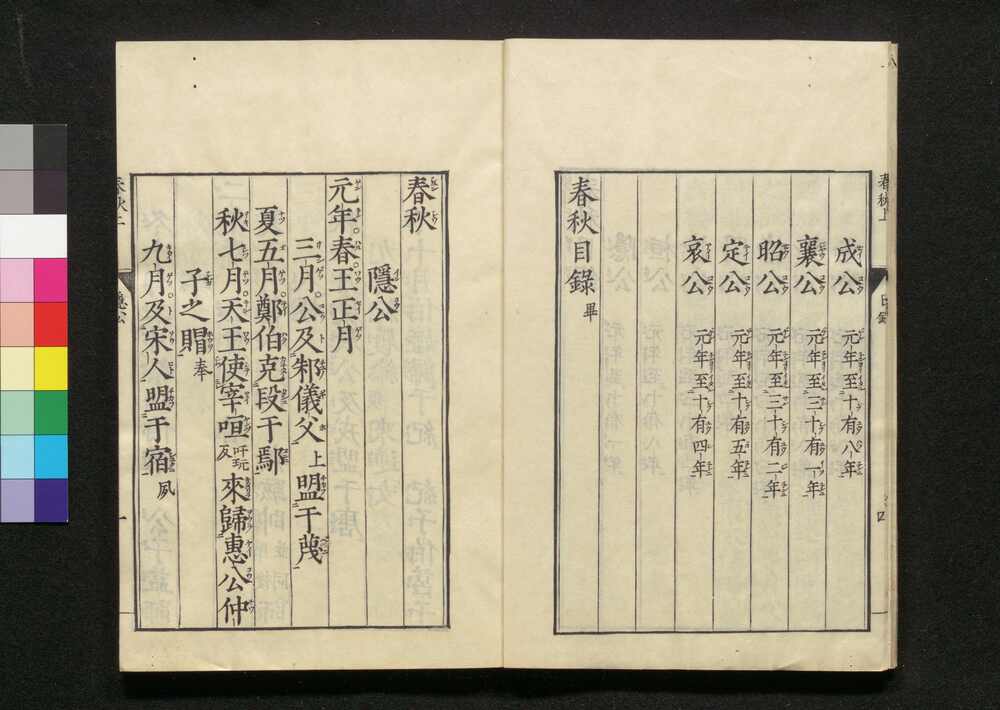 成公 元年至十有八年
襄公 元年至三十有一年
昭公 元年至三十有二年
定公 元年至十有五年
哀公 元年至十有四年
春秋目錄畢
春秋
隱公
元年春王正月
三月公及邾儀父上盟于蔑
夏五月鄭伯克段于鄢
秋七月天王使宰咺吁玩反來歸惠公仲
子之賵奉
九月及宋人盟于宿夙